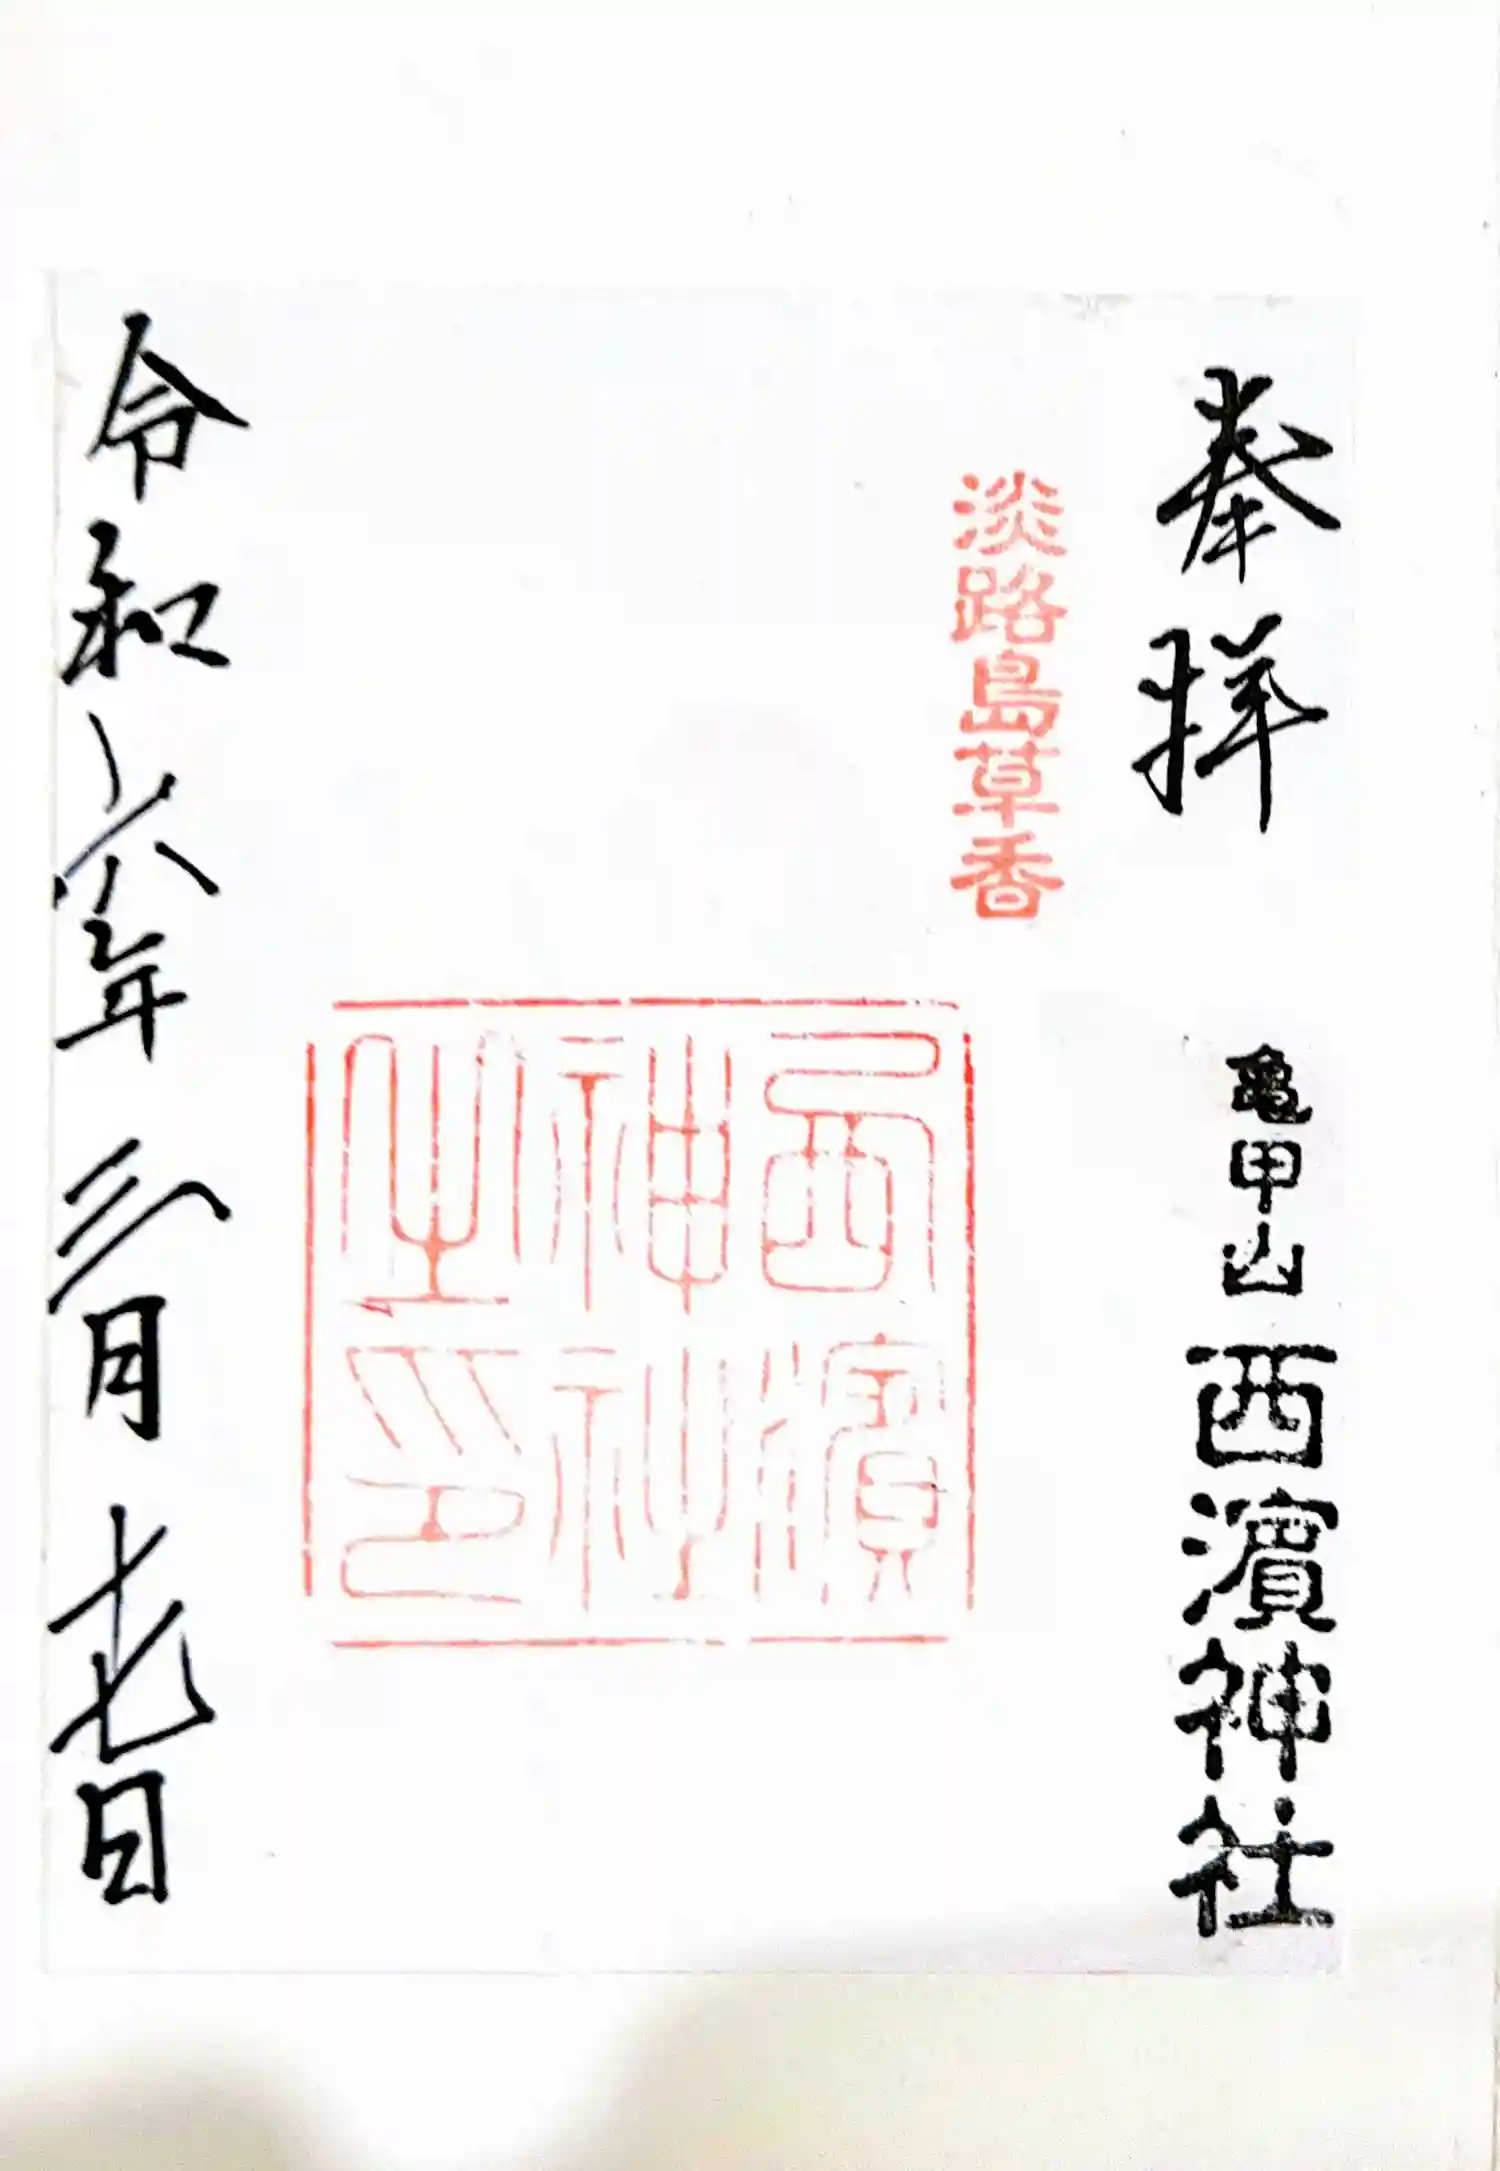 奉拝
亀甲山 西濱神社
淡路島草香
西濱
神社
之印
令和六年三月十七日